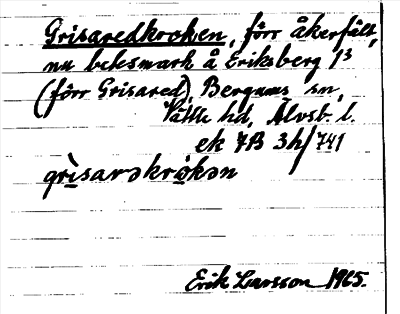 Grisaredkroken, förr åkerfält,
nu betesmark å Eriksberg 1³
(förr Grisared), Bergums sn,
Vättle hd, Älvsb. l.
ek 7B 3h/741
grìsarəkrò̤kən
Erik Larsson 1965.